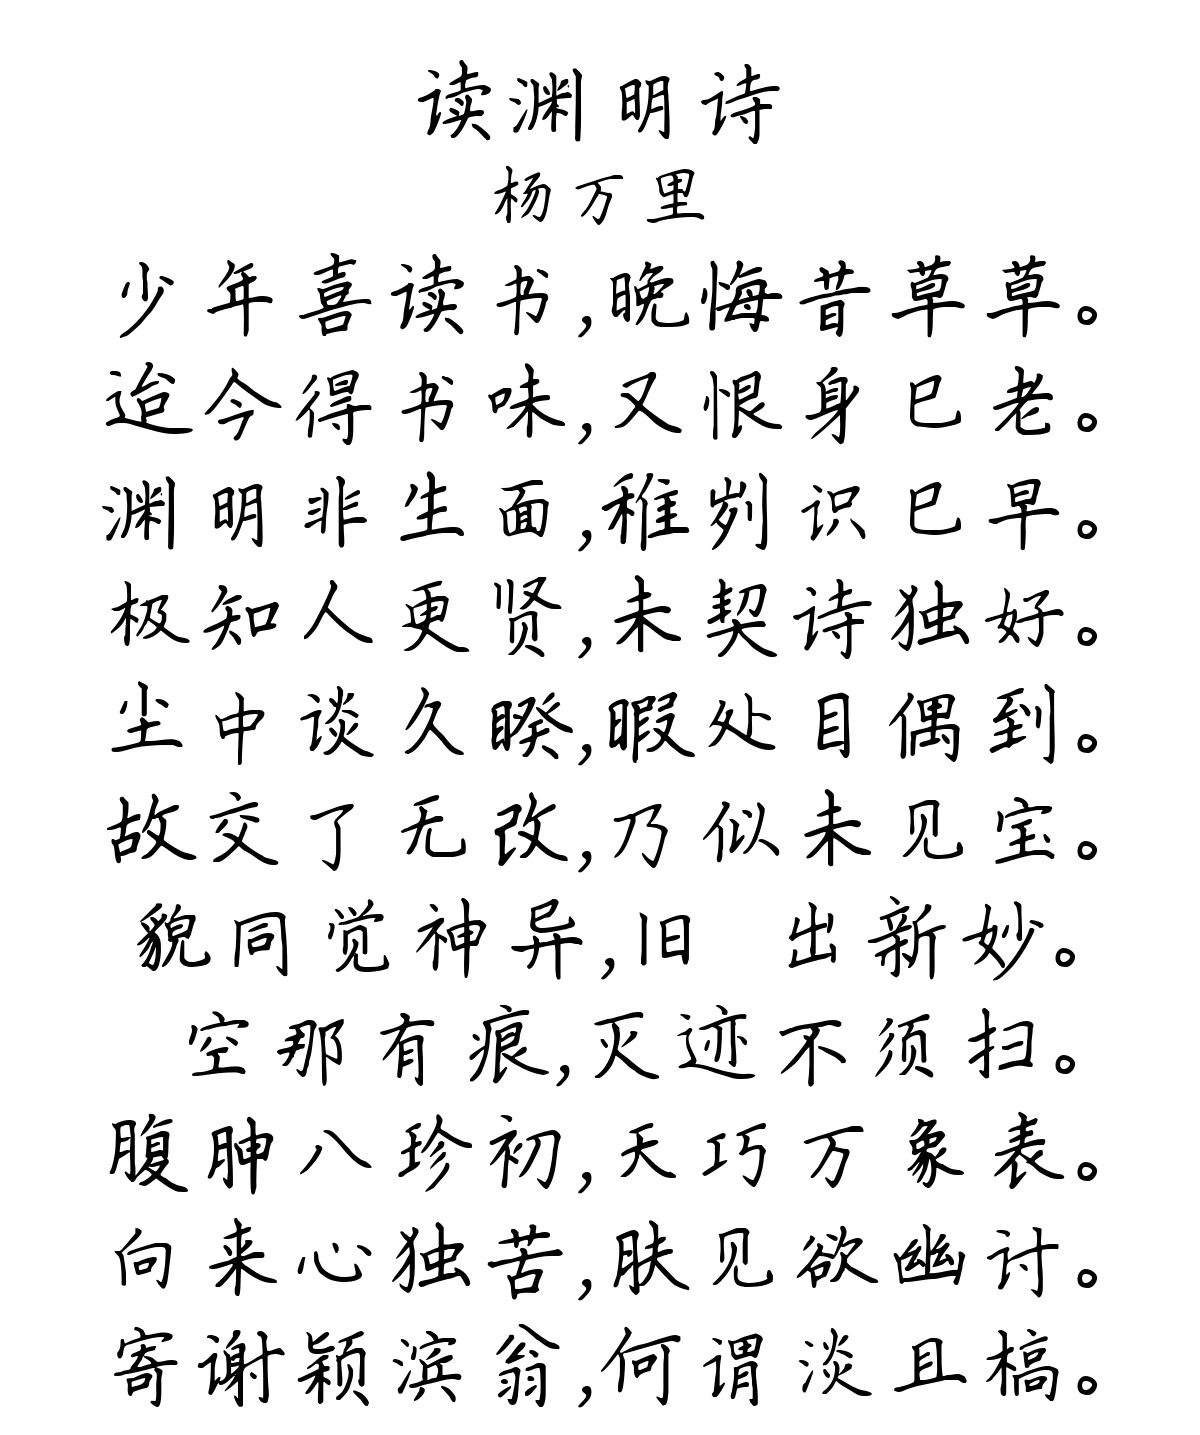 读渊明诗
杨万里
少年喜读书,晚悔昔草草。
迨今得书味,又恨身已老。
渊明非生面,稚刿识已早。
极知人更贤,未契诗独好。
尘中谈久睽,暇处目偶到。
故交了无改,乃似未见宝。
貌同觉神异,旧 出新妙。
空那有痕,灭迹不须扫。
腹胂八珍初,天巧万象表。
向来心独苦,肤见欲幽讨。
寄谢颖滨翁,何谓淡且槁。